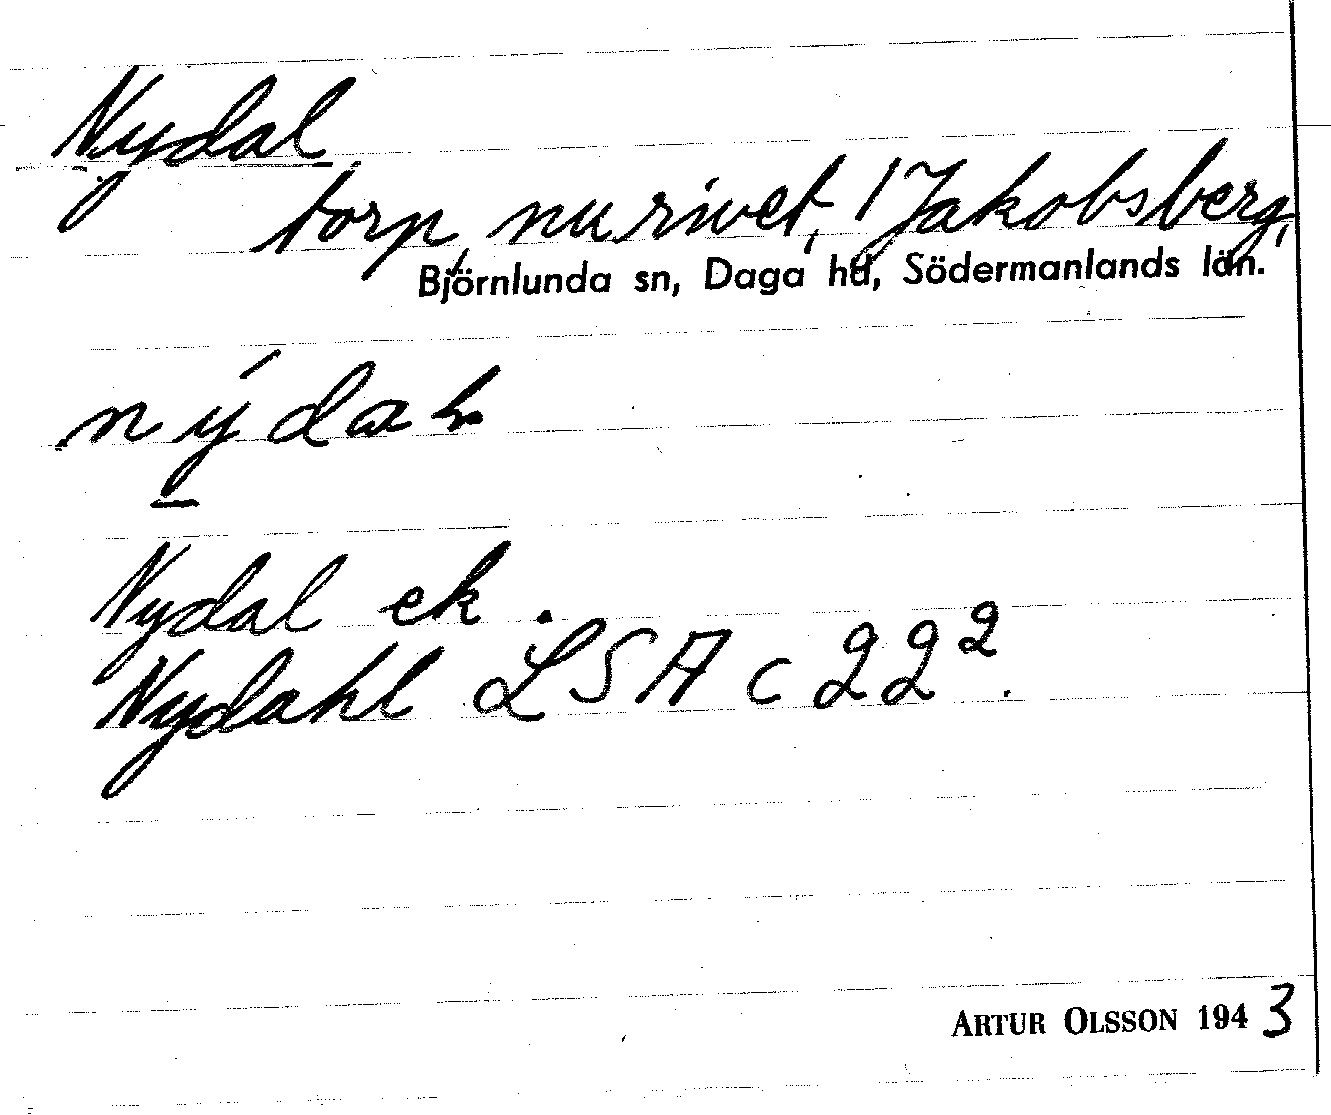 Nydal
torp, nu rivet, 1 Jakobsberg,
Björnlunda sn, Daga hd, Södermanlands län.
Nydal ek.
Nydahl LSA c 22²
ARTUR OLSSON 1943